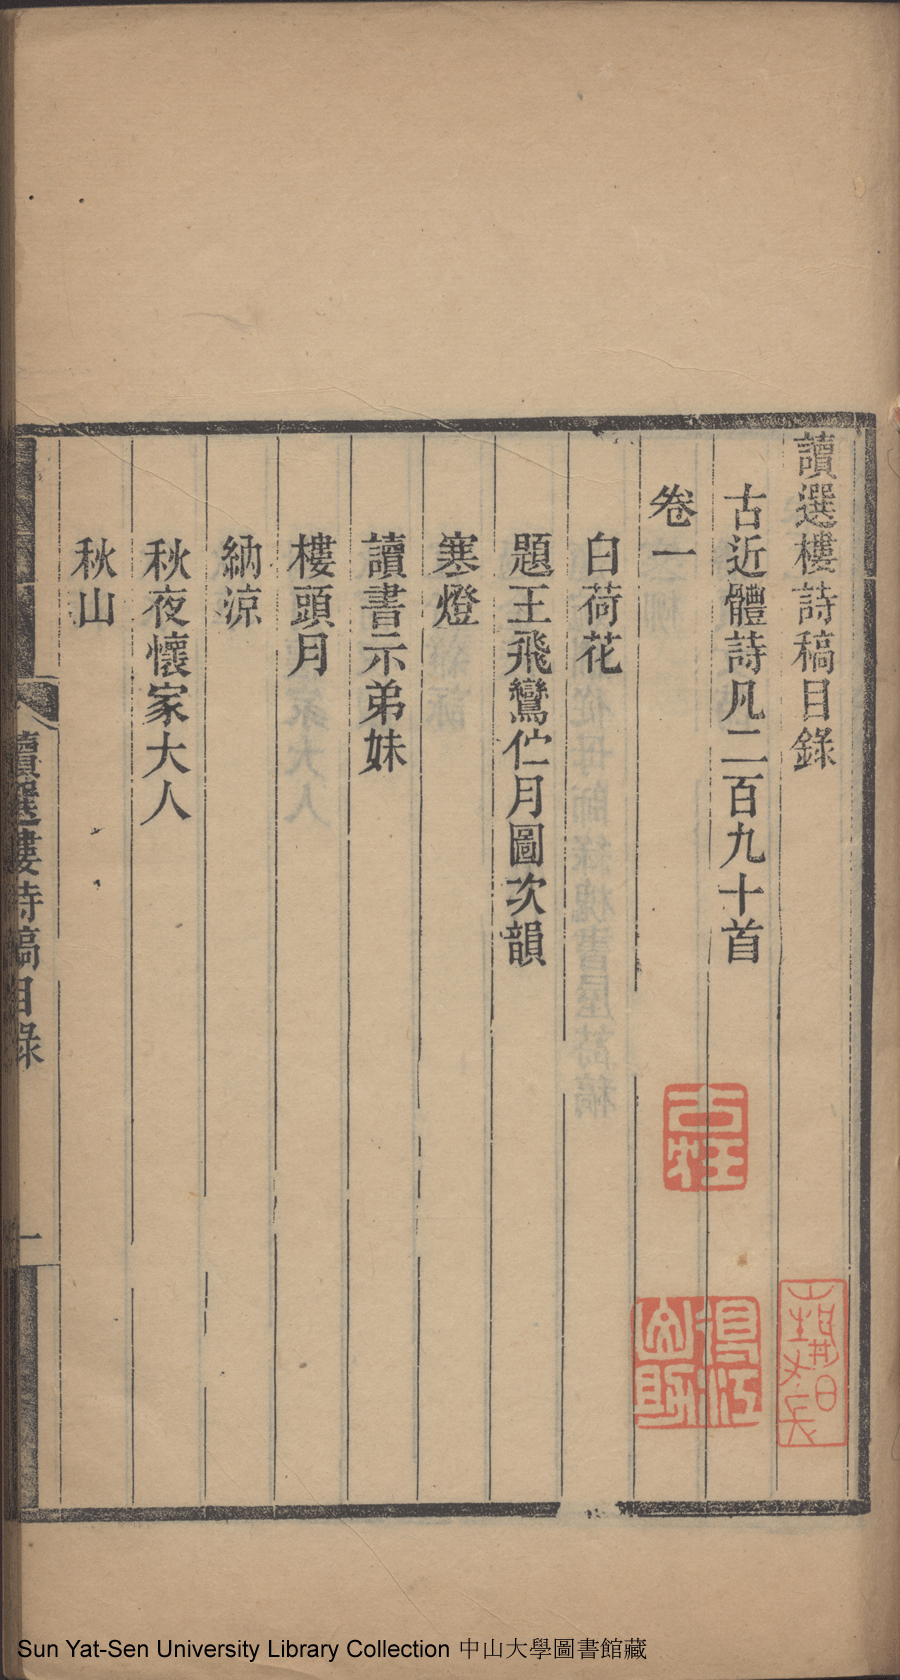 讀選樓詩稿目錄
古近體詩凡二百九十首
卷一
白荷花
題王飛鸞伫月圖次韻
寒燈
讀書示弟妹
樓頭月
納涼
秋夜懷家大人
秋山
讀選樓詩稿目錄
一
Sun Yat-Sen University Library Collection 中山大學圖書館藏